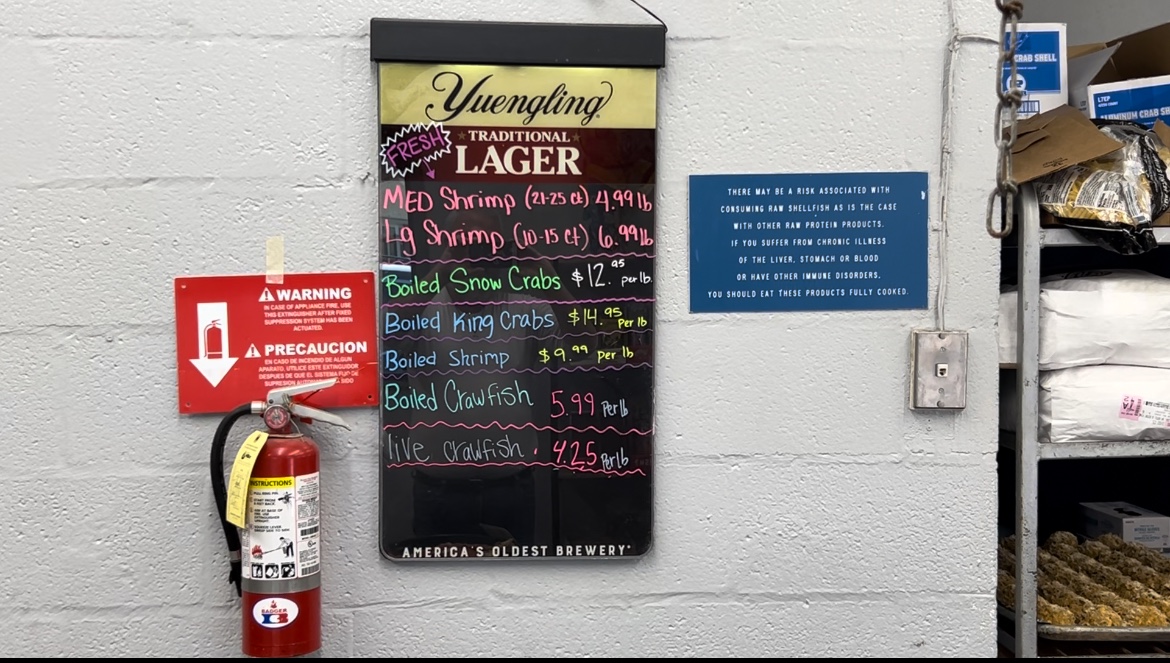 Yuengling
FRESH
TRADITIONAL
LAGER
MED Shrimp (21-25 ct) 4.99 lb
Lg Shrimp (10-15 ct) 6.99 lb
Boiled Snow Crabs $12.95 per lb.
Boiled King Crabs $14.95 Per lb
Boiled Shrimp $9.99 per lb
Boiled Crawfish 5.99 Per lb
live crawfish . 4.25 Per lb
AMERICA'S OLDEST BREWERY
WARNING
IN CASE OF APPLIANCE FIRE, USE
THIS EXTINGUISHER AFTER FIXED
SUPPRESSION SYSTEM HAS BEEN
ACTUATED.
PRECAUCION
EN CASO DE INCENDIO DE ALGUN
APARATO, UTILICE ESTE EXTINGUIDOR
DESPUES DE QUE EL SISTEMA
SUPRESION
INSTRUCTIONS
BADGER
THERE MAY BE A RISK ASSOCIATED WITH
CONSUMING RAW SHELLFISH AS IS THE CASE
WITH OTHER RAW PROTEIN PRODUCTS.
IF YOU SUFFER FROM CHRONIC ILLNESS
OF THE LIVER, STOMACH OR BLOOD
OR HAVE OTHER IMMUNE DISORDERS,
YOU SHOULD EAT THESE PRODUCTS FULLY COOKED.
CRAB SHELL
ALUMINUM CRAB